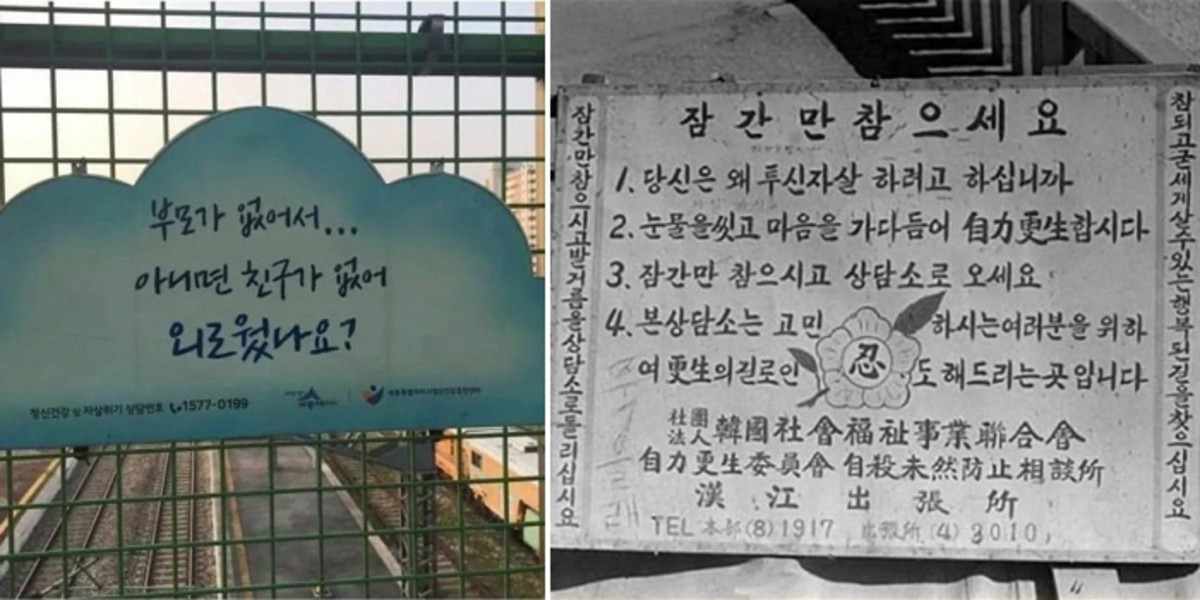 부모가 없어서...
아니면 친구가 없어
외로웠나요?
정신건강 및 자살위기 상담번호 1577-0199
잠간만참으시고발거름을상담소로돌리십시요
잠간만참으세요
1. 당신은 왜 투신자살 하려고 하십니까
2. 눈물을씻고 마음을 가다듬어 自力更生합시다
3. 잠간만 참으시고 상담소로 오세요
4. 본상담소는 고민 하시는여러분을 위하
여 更生의길로인 도해드리는 곳 입니다
忍
社團
法人 韓國社會福祉事業聯合會
自力更生委員會 自殺未然防止相談所
漢江出張所
TEL 本部(8)1917 出張所(4)3010,
참되고굳세게살수있는행복된길을찾으십시요